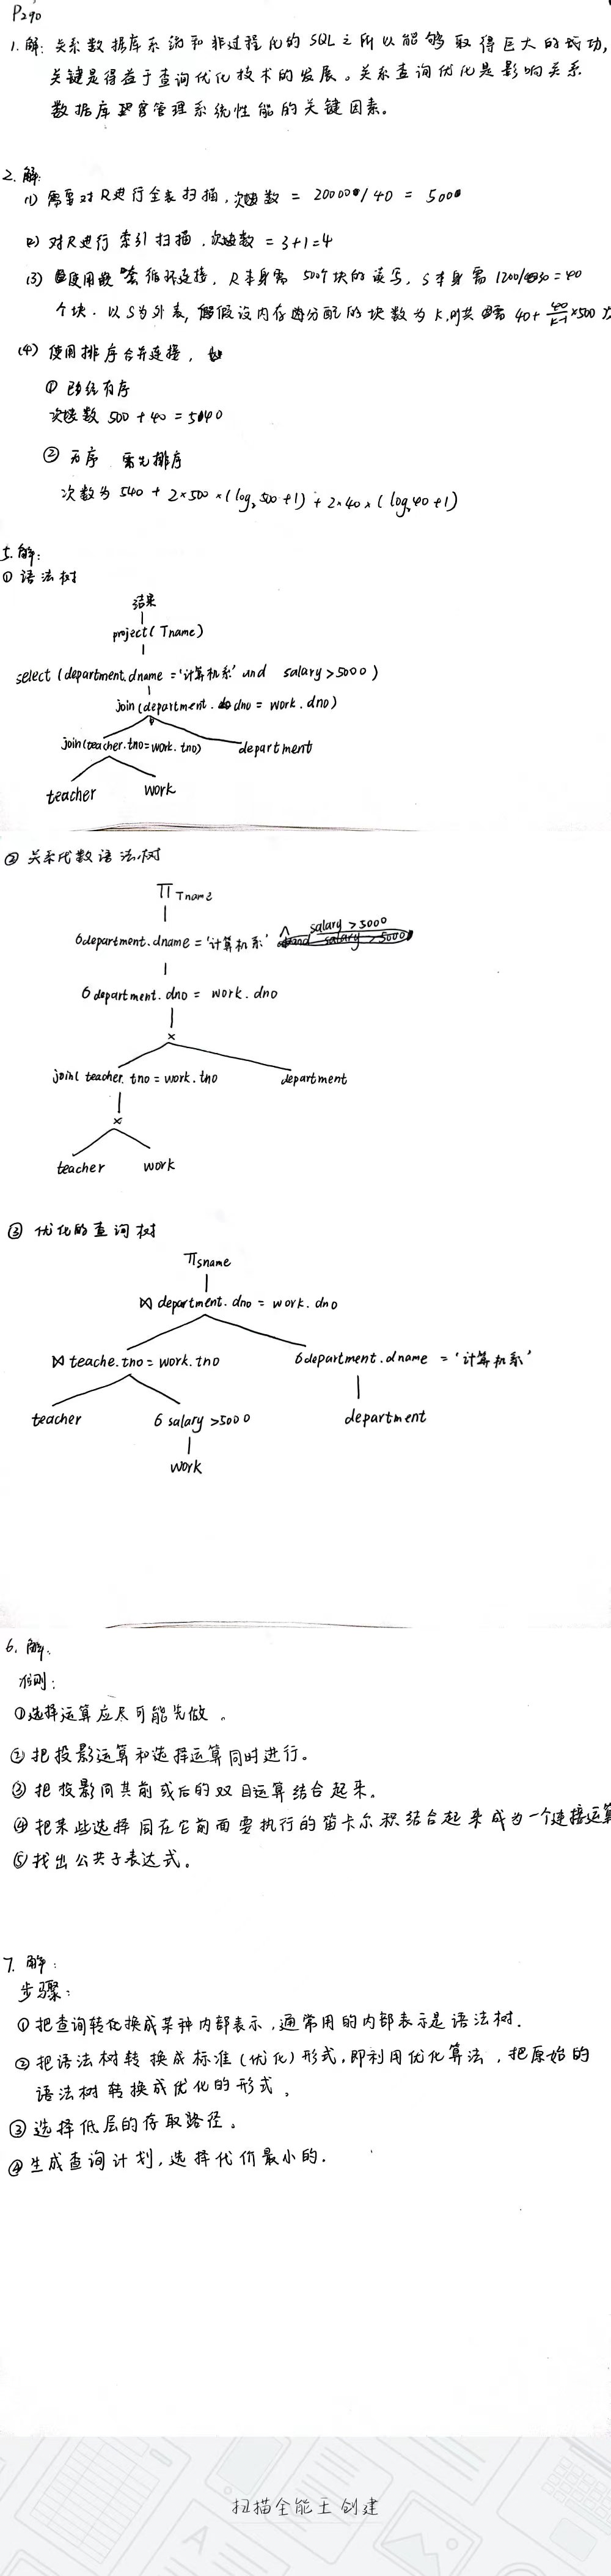 P290
1. 解: 关系数据库系统和非过程化的 SQL 之所以能够取得巨大的成功,
关键是得益于查询优化技术的发展。关系查询优化是影响关系
数据库管理系统性能的关键因素。
2. 解:
(1) 需要对 R 进行全表扫描, 次数 = 20000/40 = 500
(2) 对R进行索引扫描, 次数 = 3+1=4
(3) 使用嵌套循环连接, R 本身需 500个块的读写, S 本身需 1200/30 = 40
个块. 以 S 为外表, 假设内存分配的块数为 K, 则共需 40 + 40/(K-1) ×500 次
(4) 使用排序合并连接,
① 已经有序
次数 500 + 40 = 540
② 无序 需先排序
次数为 540 + 2×500×(log₂500+1) + 2×40×(log₂40+1)
5. 解:
① 语法树
结果
project( Tname)
select (department.dname = '计算机系' and salary>5000)
join (department.dno = work.dno)
join(teacher.tno=work.tno) department
teacher work
② 关系代数语法树
Π Tname
σ department.dname = '计算机系' ∧ salary > 5000
σ department.dno = work.dno
×
join( teacher.tno = work.tno department
×
teacher work
③ 优化的查询树
Π sname
⋈ department.dno = work.dno
⋈ teache.tno = work.tno σ department.dname = '计算机系'
teacher σ salary >5000 department
work
6. 解:
准则:
①选择运算应尽可能先做。
②把投影运算和选择运算同时进行。
③把投影同其前或后的双目运算结合起来。
④把某些选择同在它前面要执行的笛卡尔积结合起来成为一个连接运算
⑤找出公共子表达式。
7. 解:
步骤:
①把查询转化换成某种内部表示,通常用的内部表示是语法树.
②把语法树转换成标准(优化)形式,即利用优化算法,把原始的
语法树转换成优化的形式。
③选择低层的存取路径。
④生成查询计划,选择代价最小的.
扫描全能王 创建